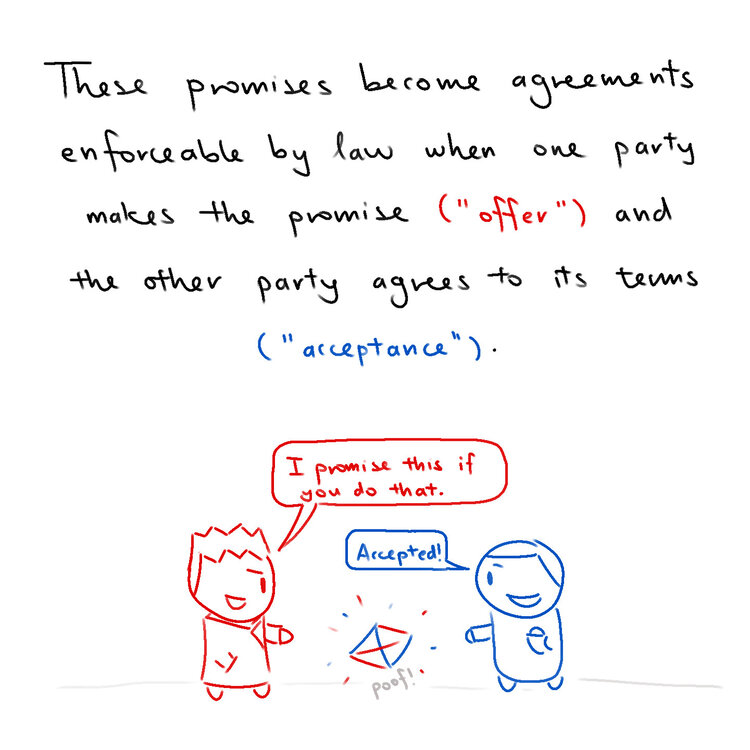 These promises become agreements
enforceable by law when one party
makes the promise ("offer") and
the other party agrees to its terms
("acceptance").
I promise this if
you do that.
Accepted!
poof!